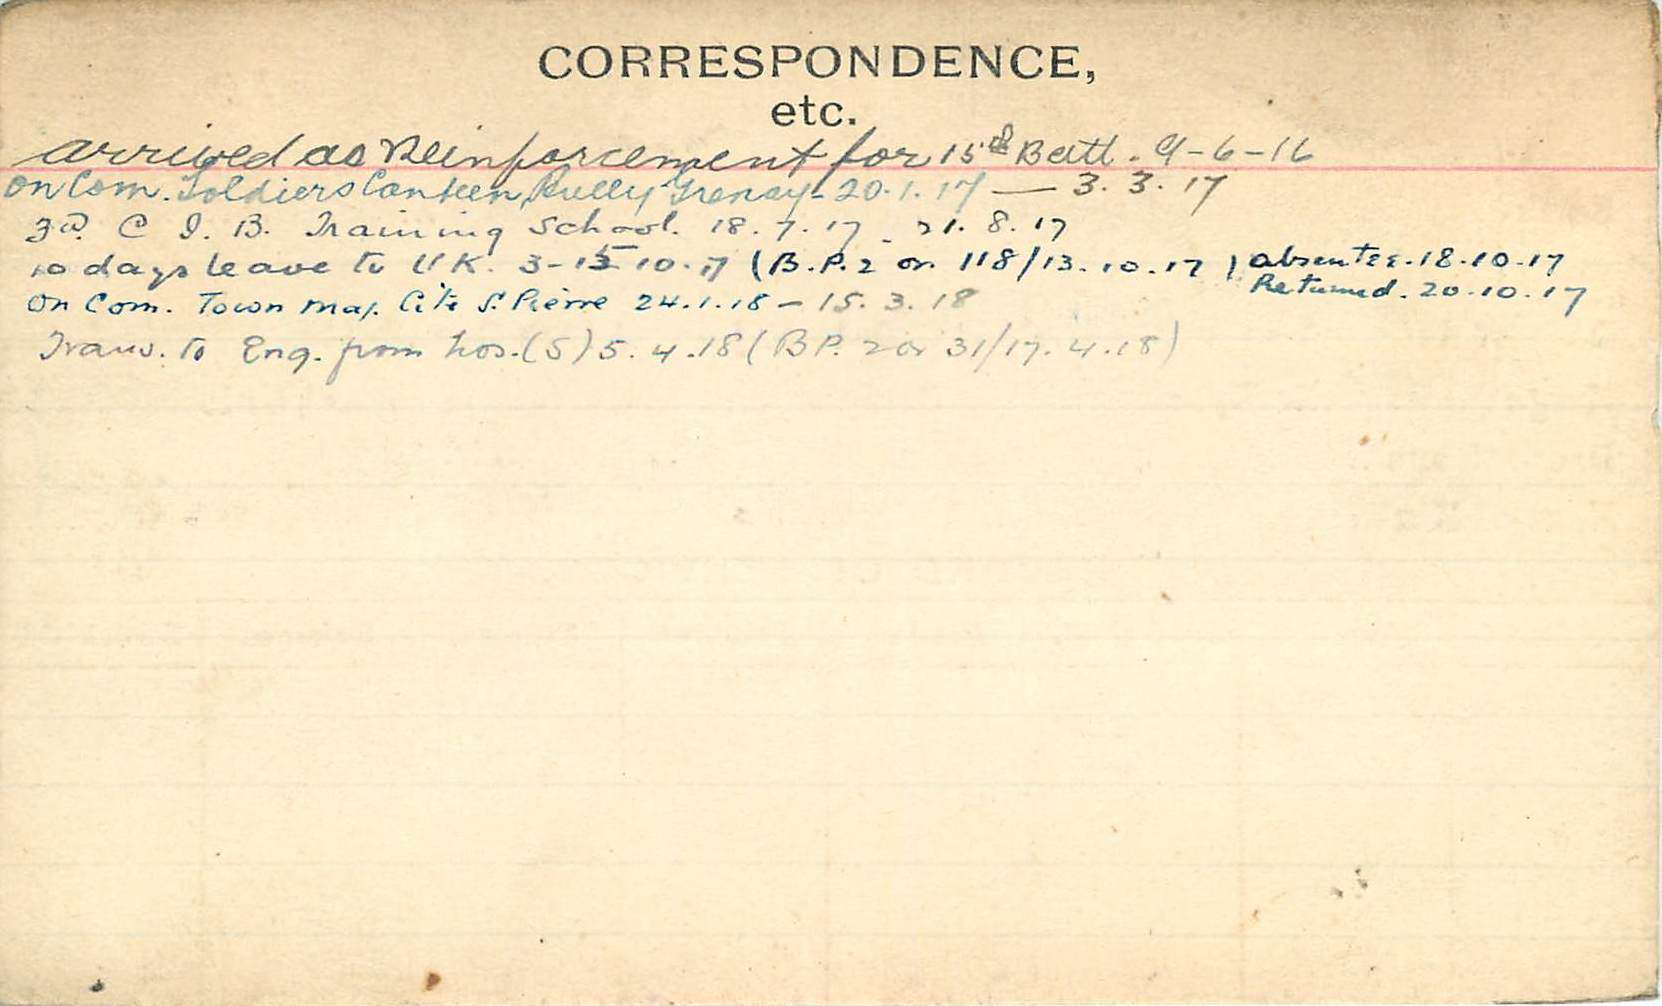 CORRESPONDENCE,
etc.
arrived as Reinforcement for 15th Batt. 9-6-16
on Com. Soldiers Canteen, Bully Grenay - 20.1.17 — 3.3.17
3rd. C I. B. Training School. 18.7.17 - 21.8.17
10 days leave to UK. 3-13 10.17 (B.P.2 or 118/13.10.17) absentee. 18.10.17
Returned. 20.10.17
On Com. Town Maj. Cite St. Pierre 24.1.18 - 15.3.18
Trans. to Eng. from hos. (S) 5.4.18 (BP. 2 or 31/17.4.18)